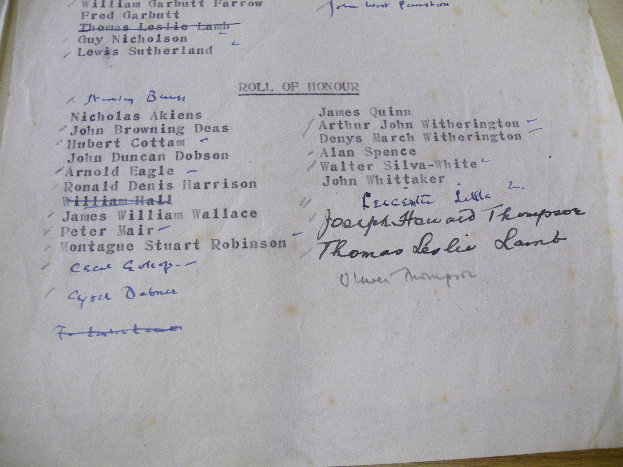 William Garbutt Farrow
Fred Garbutt
Thomas Leslie Lamb
Guy Nicholson
Lewis Sutherland
John West
ROLL OF HONOUR
Stanley
Nicholas Akiens
John Browning Deas
Hubert Cottam
John Duncan Dobson
Arnold Eagle
Ronald Denis Harrison
William Hall
James William Wallace
Peter Mair
Montague Stuart Robinson
Cecil
Cyril
James Quinn
Arthur John Witherington
Denys March Witherington
Alan Spence
Walter Silva-White
John Whittaker
Leicester Little
Joseph Howard Thompson
Thomas Leslie Lamb
Oliver Thompson